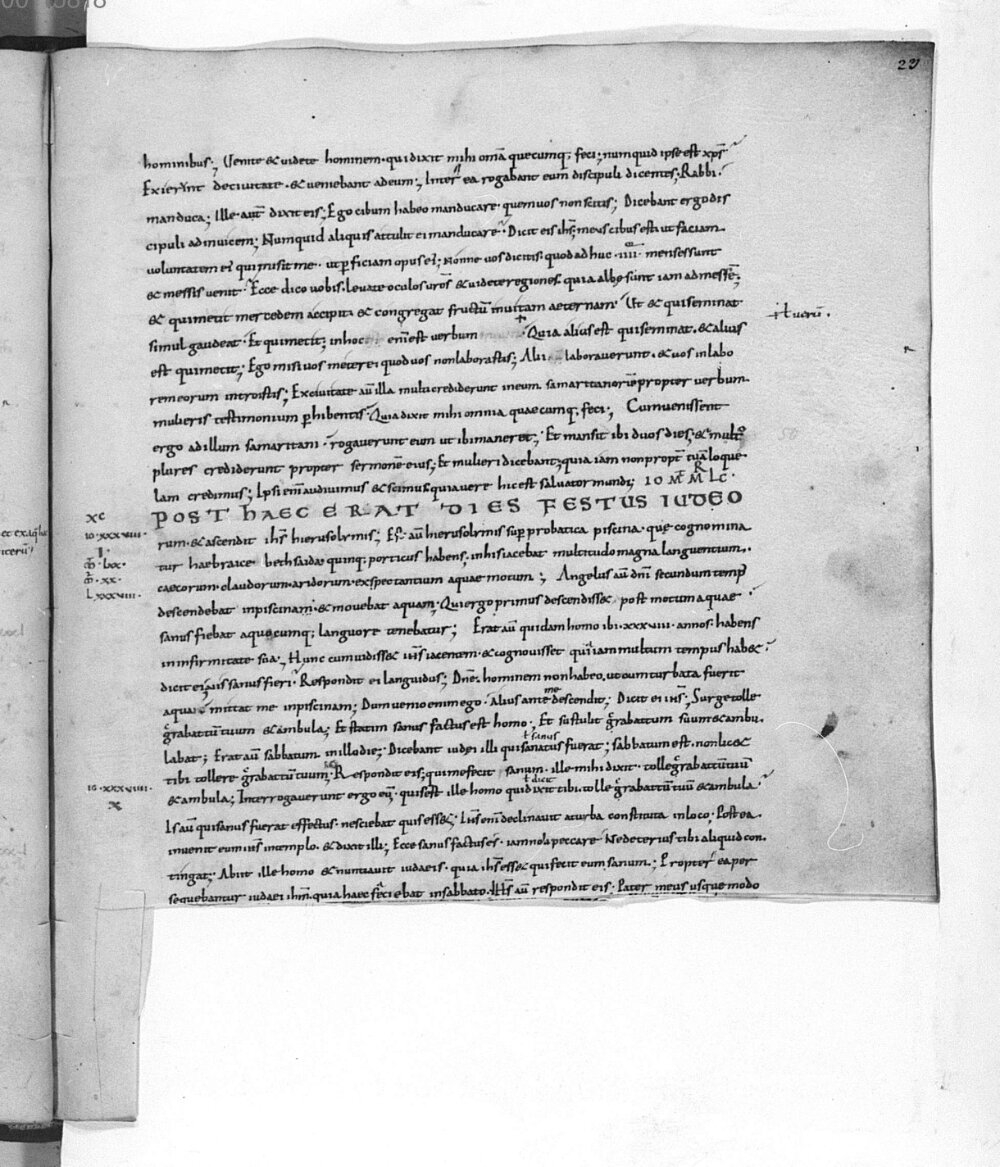 23
hominibus; Venite & uidete hominem· qui dixit mihi om̄a quecumq; feci; numquid ipse est xp̄s
Exierunt de ciuitate· & ueniebant ad eum; Inter ea rogabant eum discipuli dicentes; Rabbi·
manduca; Ille aut̄ dixit eis; Ego cibum habeo manducare quem uos non scitis; Dicebant ergo dis
cipuli ad inuicem; Numquid aliquis attulit ei manducare· Dicit eis ih̄s; meus cibus est ut faciam
uoluntatem ei' qui misit me· ut ꝑficiam opus ei'; Nonne uos dicitis· quod ad huc ·iiii· menses sunt
& messis uenit· Ecce dico uobis· leuate oculos ur̄os & uidete regiones quia albę sunt iam ad messē;
& qui metit mercedem accipit· & congregat fructū in uitam aeternam· Ut & qui seminat
simul gaudeat· Et qui metit; in hoc enī est uerbum · Quia alius est qui seminat· & alius
⸓ ł uerū·
est qui metit; Ego misi uos metere· quod uos non laborastis; Alii laborauerunt· & uos in labo
rem eorum introistis; Ex ciuitate aū illa multi crediderunt in eum samaritanorū propter uerbum
mulieris testimonium ꝑhibentis· Quia dixit mihi omnia quaecumq; feci; Cum uenissent
ergo ad illum samaritani· rogauerunt eum ut ibi maneret; Et mansit ibi duos dies; & multo
plures crediderunt propter sermonē eius; Et mulieri dicebant; quia iam non propt̄ tuā loque
lam credimus; Ipsi enī audiuimus & scimus quia uere hic est saluator mundi; IO M̄ M̄R LC·
POST HAEC ERAT DIES FESTUS IUDEO
xc
io·xxxuiii·
i·
m̄·lxx·
m̄·xx·
L xxxuiii·
rum· & ascendit ih̄s hierusolimis; Est aū hierusolimis suꝑ probatica piscina· que cognomina
tur haebraice bethsaida· quinq; porticus habens; in his iacebat multitudo magna languentium·
caecorum· claudorum· aridorum· exspectantium aquae motum; Angelus aū dn̄i secundum temp'
descendebat in piscinam· & mouebat aquam; Qui ergo primus descendisset post motum aquae
sanus fiebat aquocumq; languore tenebatur; Erat aū quidam homo ibi· xxxuiii· annos· habens
in infirmitate sua; Hunc cum uidisset ih̄s iacentem· & cognouisset quia iam multum tempus habet
dicit ei; uis sanus fieri· Respondit ei languidus; Dn̄e· hominem non habeo· ut cum turbata fuerit
aqua mittat me in piscinam; Dum uenio enim ego· alius ante me descendit; Dicit ei ih̄s; Surge tolle
grabattū tuum & ambula; Et statim sanus factus est homo; Et sustulit grabattum suum & ambu
labat; Erat aū sabbatum in illo die; Dicebant iudei illi qui sanatus fuerat; sabbatum est· non licet
ł sanus
tibi tollere grabattū tuum; Respondit eis; qui me fecit sanum· ille mihi dixit· tolle grabattū tuū
io·xxxuiiii·
x
& ambula; Interrogauerunt ergo eū; quis est ille homo qui dixit tibi tolle grabattū tuū & ambula·
ł dicit
Is aū qui sanus fuerat effectus· nesciebat quis esset; Ih̄s enī declinauit a turba constituta in loco· Post ea
inuenit eum ih̄s in templo· & dixit illi; Ecce sanus factus es· iam noli peccare· Ne deterius tibi aliquid con
tingat; Abiit ille homo & nuntiauit iudaeis· quia ih̄s esset qui fecit eum sanum; Propter ea per
sequebantur iudaei ih̄m· quia haec faciebat in sabbato· Ih̄s aū respondit eis· Pater meus usque modo